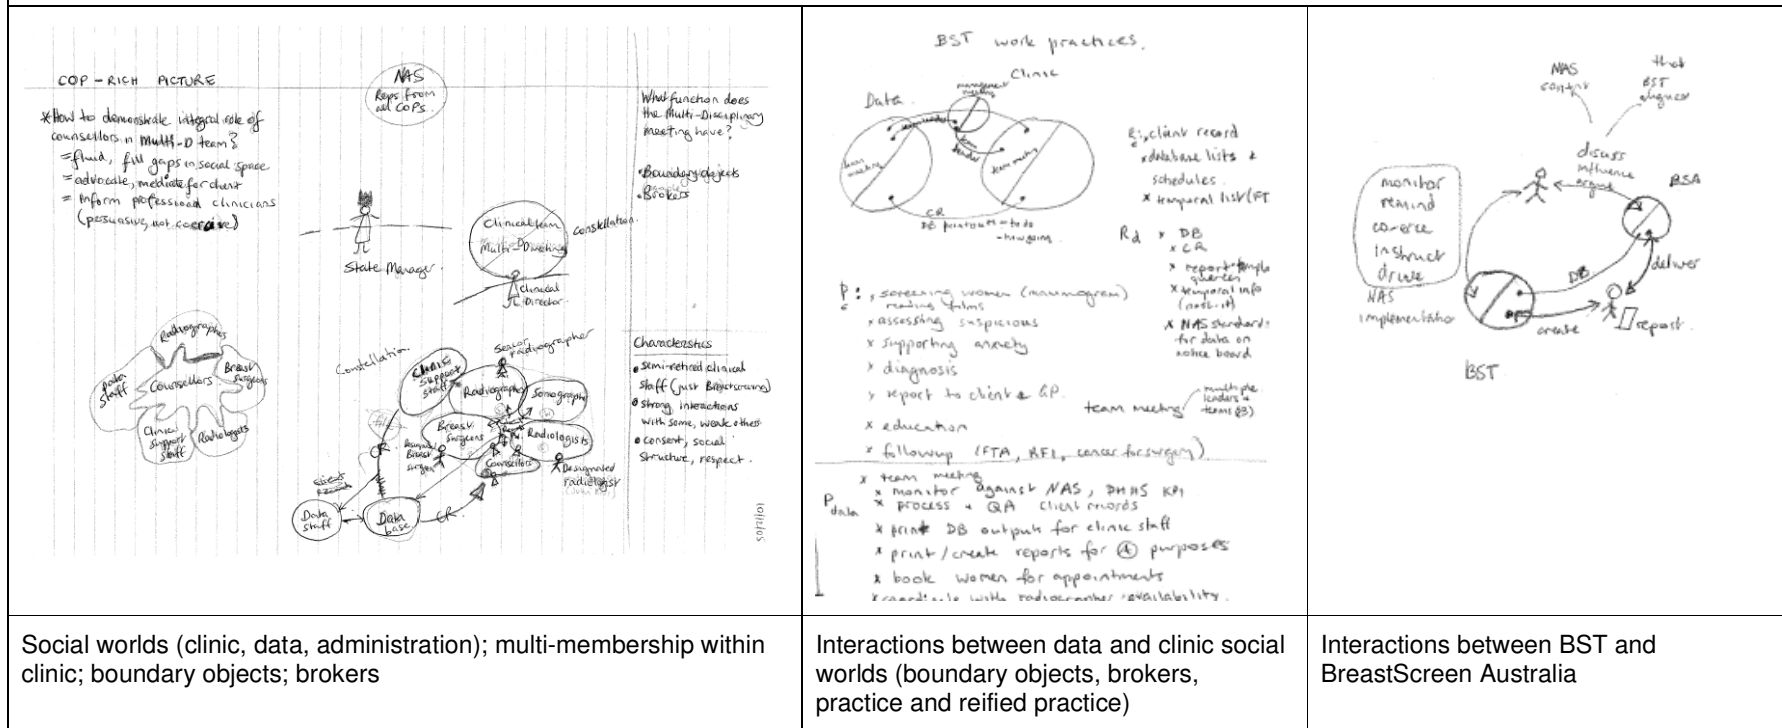 COP – RICH PICTURE
NAS
Reps from
all COPs
*How to demonstrate integral role of
counsellors in Multi-D team?
= fluid, fill gaps in social space
= advocate, mediate for client
= Inform professional clinicians
(persuasive, not coercive)
What function does
the Multi-Disciplinary
meeting have?
• Boundary objects
• Brokers
State Manager
Clinical team
Multi-D Meeting
constellation
Clinical
Director
Radiographers
Data
Staff
Counsellors
Breast
Surgeons
Clinical
Support
Staff
Radiologists
Constellation
Senior
radiographer
Clinic
Support
Staff
Radiographers
Sonographers
Breast
Surgeons
Radiologists
Counsellors
Designated
Breast
Surgeon
Designated
radiologist
Client
Records
Data
Staff
Data
base
CR
CR
Characteristics
• semi-retired clinical
staff (just Breastscreening)
• strong interactions
with some, weak others
• consent, social
structure, respect.
10/12/05
BST work practices.
Data
management
meeting
Clinic
team
meeting
team meeting
CR
DB printouts – to do
client record
x database lists &
schedules
x temporal list (FT
Rd x DB
x CR
x report temple
x temporal info
(post-it)
x NAS standards
for data on
notice board
P: x screening women (mammogram)
reading films
x assessing suspicious
x supporting anxiety
x diagnosis
x report to client & GP.
team meeting
multiple
leaders &
teams (3)
x education
x followup (FTA, RFI, cancer for surgery)
x team meeting
P data
x monitor against NAS, DHHS KPI
x process & QA client records
x print DB outputs for clinic staff
x print/create reports for (4) purposes
x book women for appointments
x coordinate with radiographer availability.
NAS
content
that
BST
discuss
influence
argue
BSA
monitor
remind
coerce
instruct
drive
NAS
implementation
DB
deliver
create
report
BST
Social worlds (clinic, data, administration); multi-membership within
clinic; boundary objects; brokers
Interactions between data and clinic social
worlds (boundary objects, brokers,
practice and reified practice)
Interactions between BST and
BreastScreen Australia